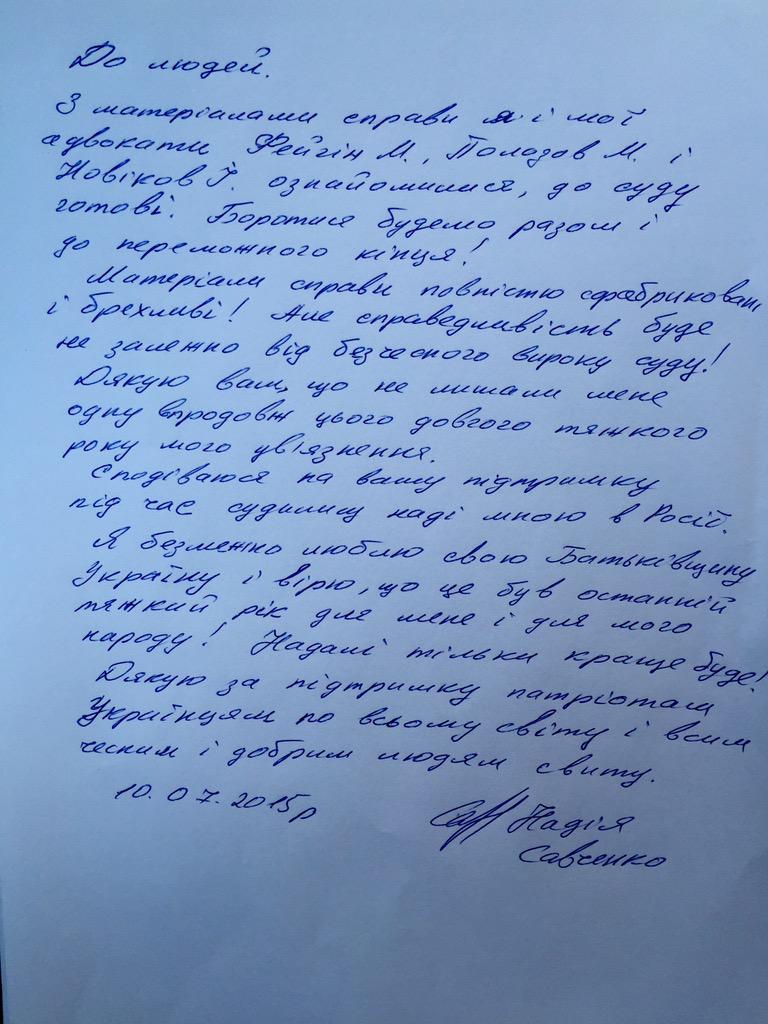 До людей.
З матеріалами справи я і мої
адвокати Фейгін М., Полозов М. і
Новіков І. ознайомилися, до суду
готові. Боротися будемо разом і
до переможного кінця!
Матеріали справи повністю сфабриковані
і брехливі! Але справедливість буде
не залежно від безчесного вироку суду!
Дякую вам, що не лишали мене
одну впродовж цього довгого тяжкого
року мого ув'язнення.
Сподіваюся на вашу підтримку
під час судилищ наді мною в Росії.
Я безмежно люблю свою Батьківщину
Україну і вірю, що це був останній
тяжкий рік для мене і для мого
народу! Надалі тільки краще буде!
Дякую за підтримку патріотам
Українцям по всьому світу і всим
чесним і добрим людям свиту.
10.07.2015р
Надія
Савченко